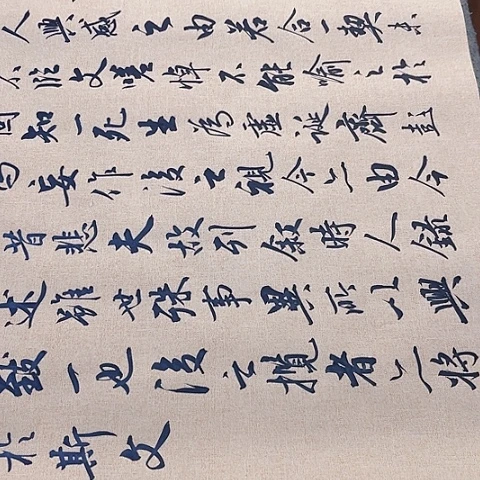 人興感之由若合一契未
不臨文嗟悼不能喻之於
固知一死生為虛誕齊彭
為妄作後之視今亦由今
昔悲夫故列敘時人錄
述雖世殊事異所以興
致一也後之攬者亦將
於斯文